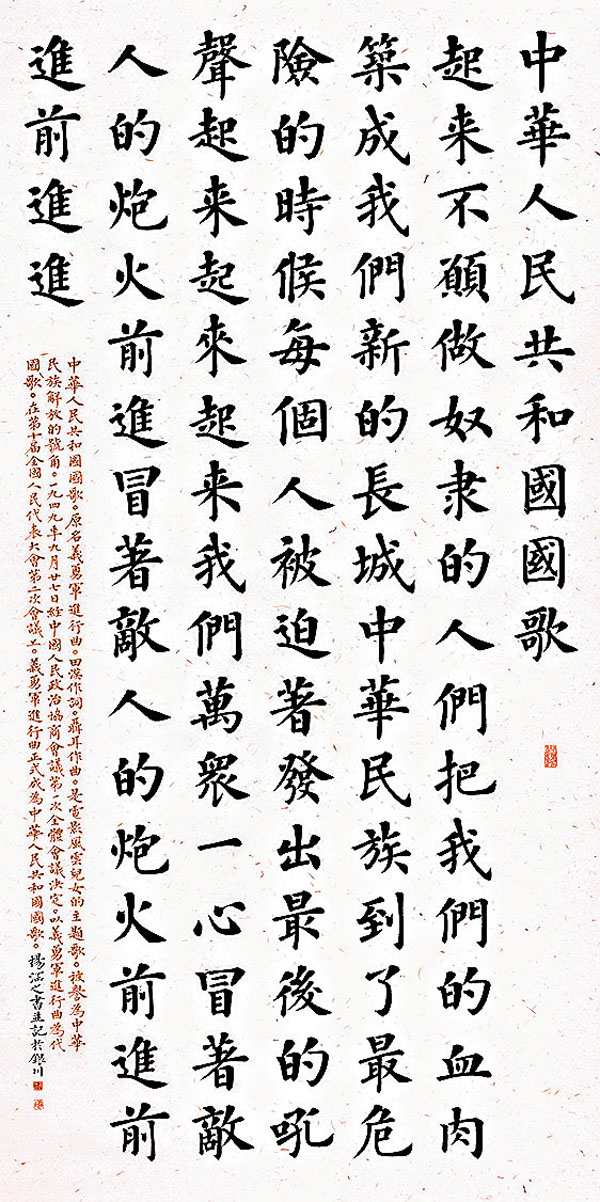 中華人民共和國國歌
起来不願做奴隶的人們把我們的血肉
築成我們新的長城中華民族到了最危
險的時候每個人被迫著發出最後的吼
聲起来起來起来我們萬衆一心冒著敵
人的炮火前進冒著敵人的炮火前進前
進前進進
中華人民共和國國歌。原名義勇軍進行曲。田漢作詞。聶耳作曲。是電影風雲兒女的主題歌。被譽為中華
民族解放的號角。一九四九年九月廿七日經中國人民政治協商會議第一次全體會議決定。以義勇軍進行曲為代
國歌。在第十届全國人民代表大會第二次會議上。義勇軍進行曲正式成為中華人民共和國國歌。楊之書並記於銀川